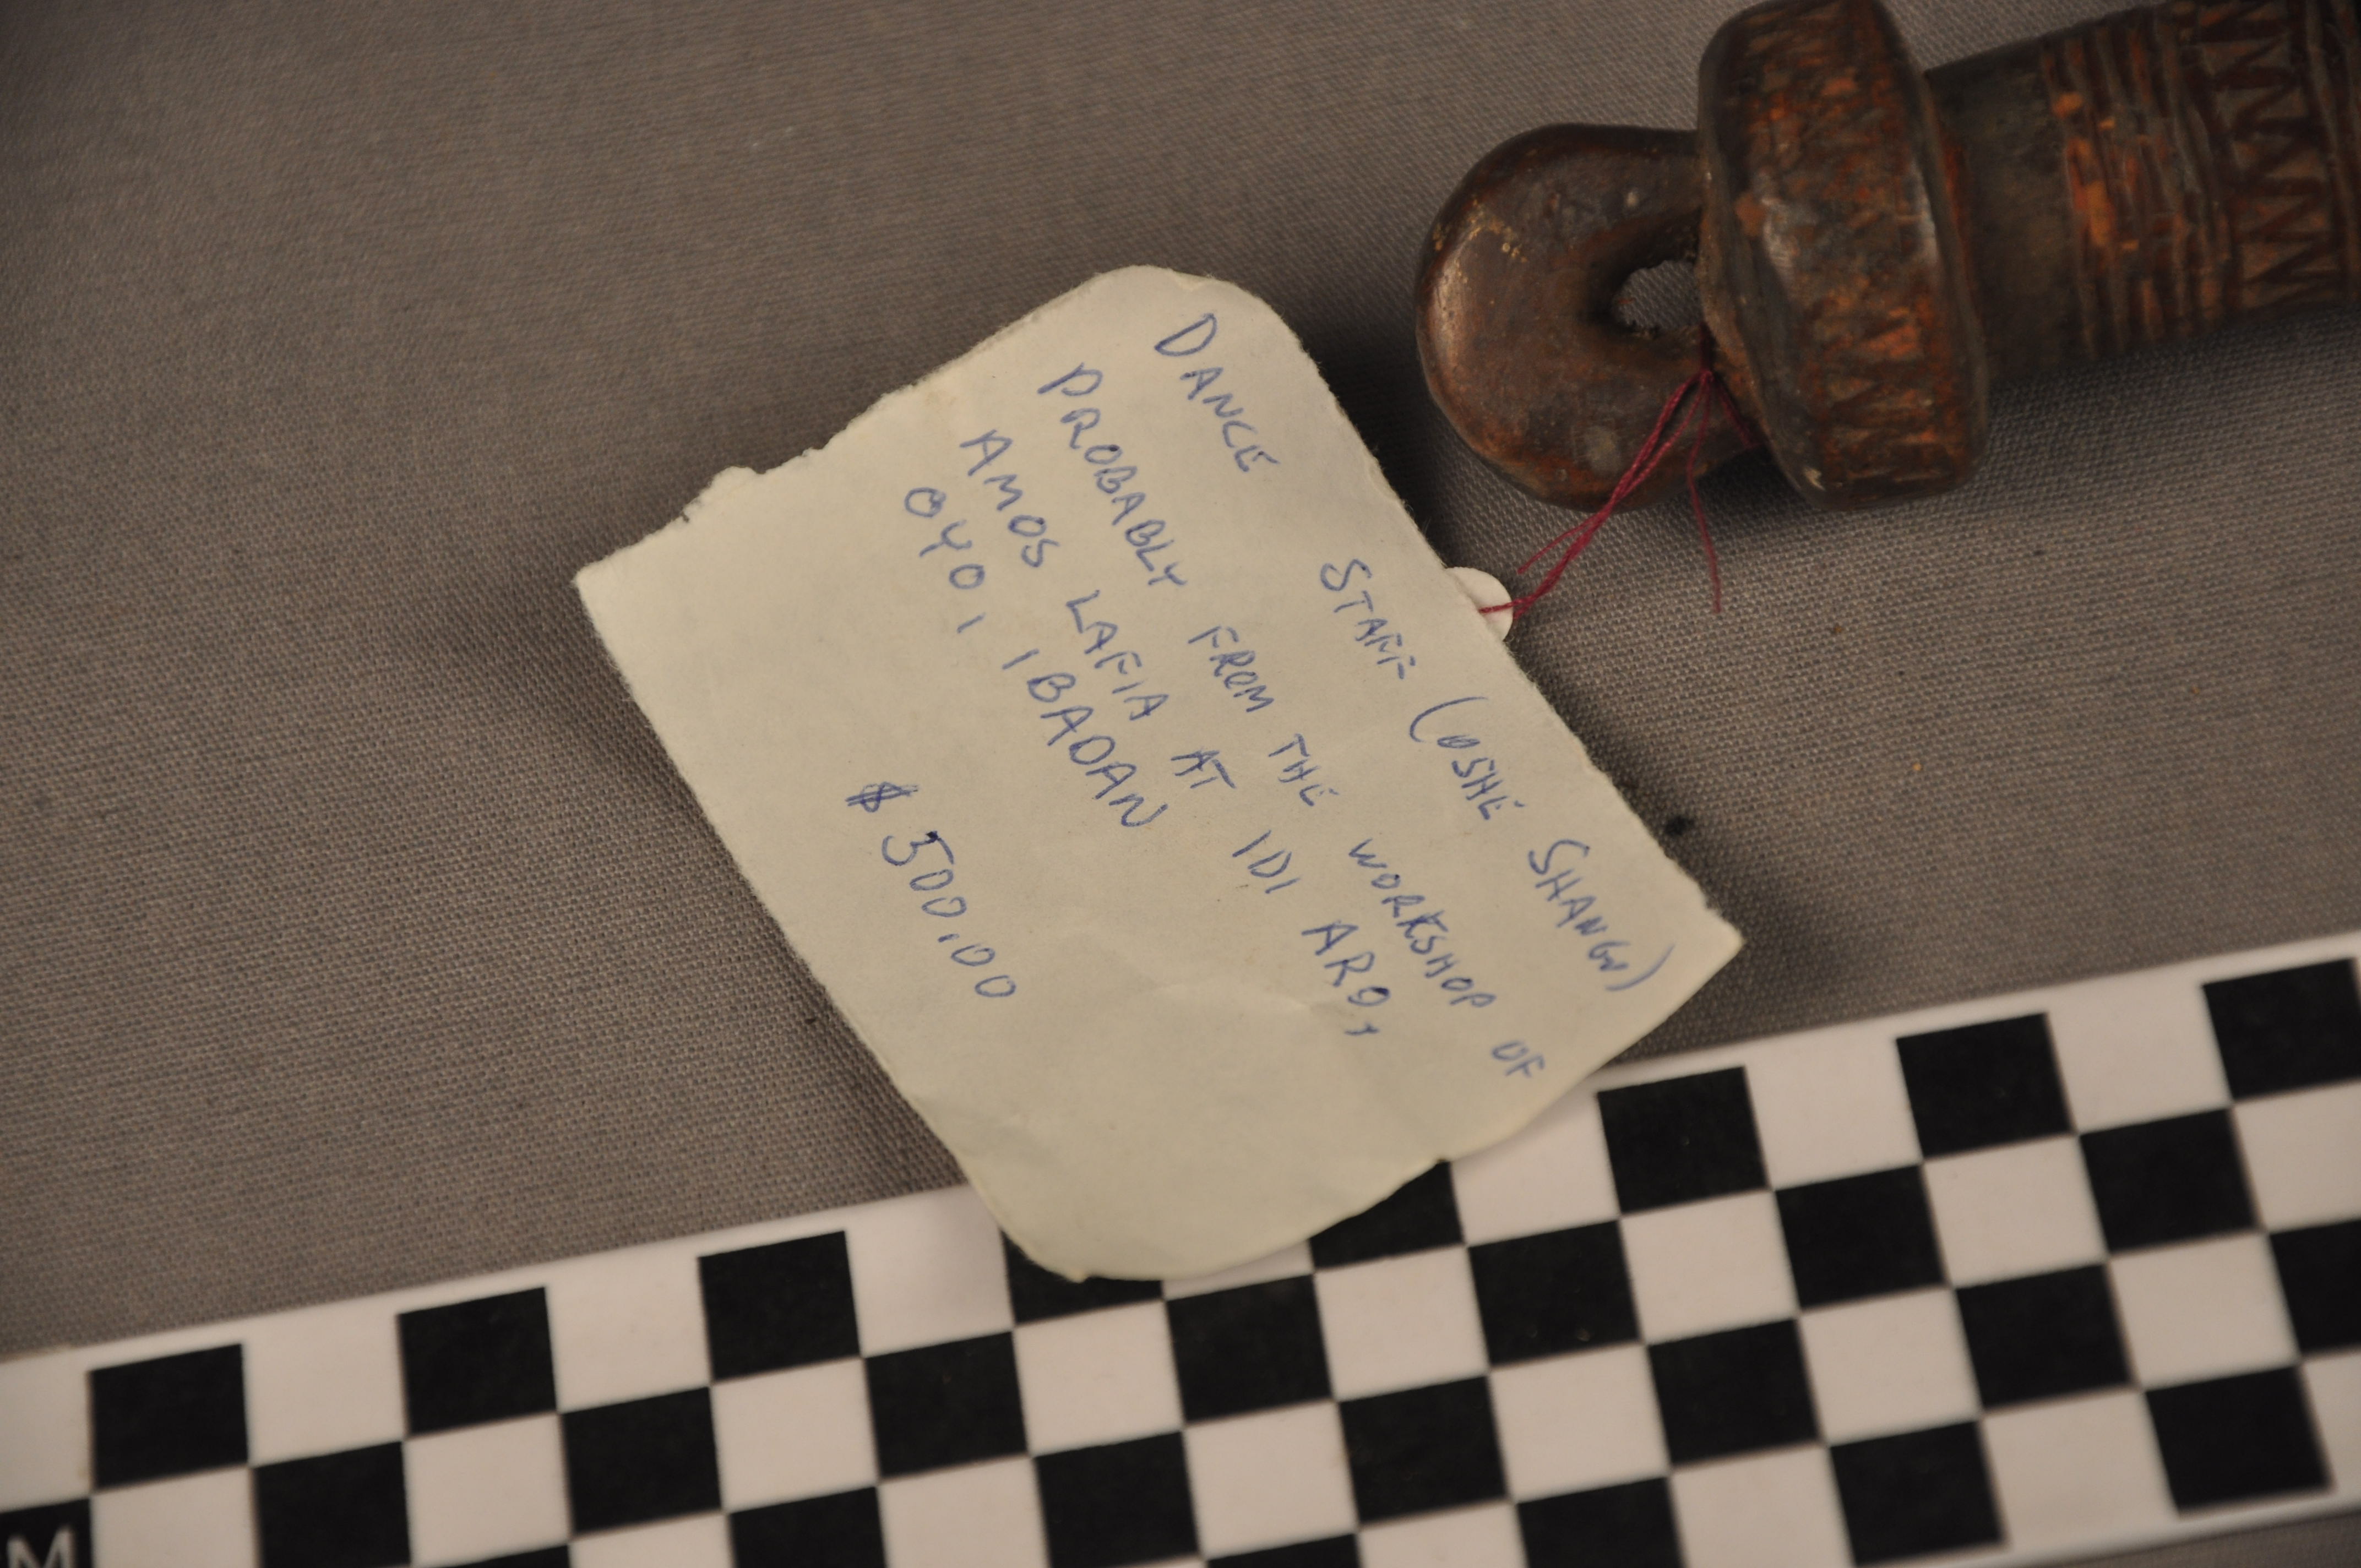 DANCE STAFF (OSHE SHANGO)
PROBABLY FROM THE WORKSHOP OF
AMOS LAFIA AT IDI ARO,
OYO, IBADAN
$500.00
M